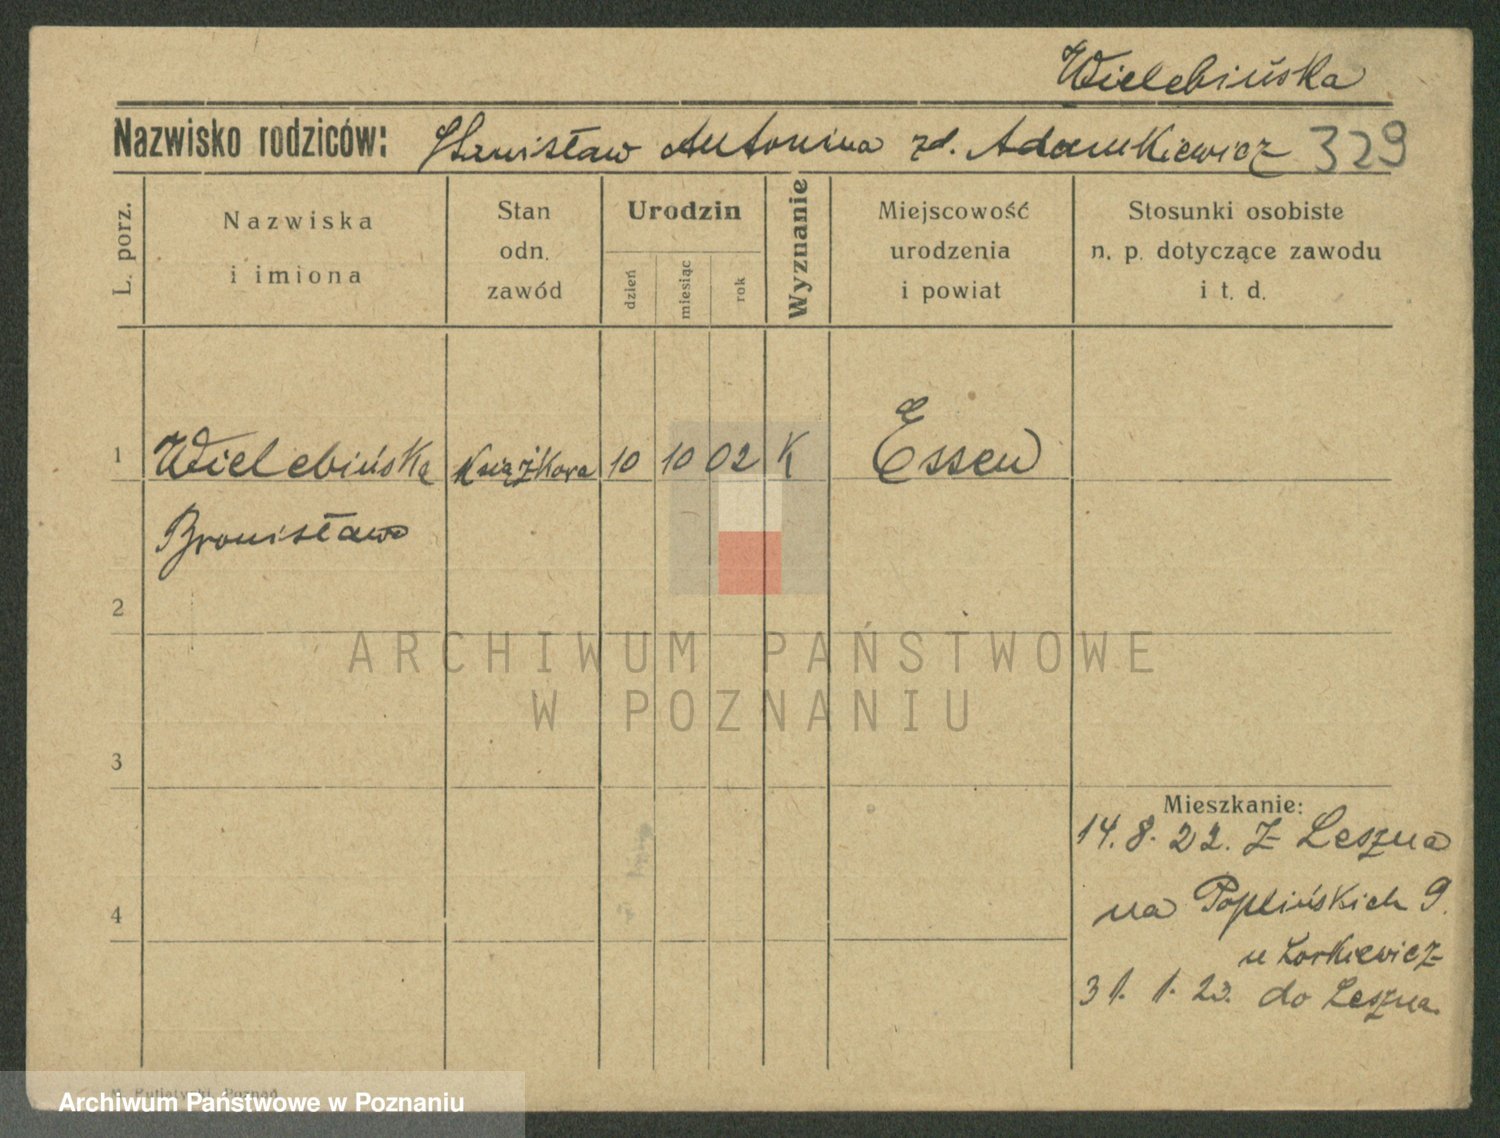 Wielebińska
Nazwisko rodziców: Stanisław Antonina zd. Adamkiewicz 329
L. porz.
Nazwiska
i imiona
Stan
odn.
zawód
Urodzin
dzień
miesiąc
rok
Wyznanie
Miejscowość
urodzenia
i powiat
Stosunki osobiste
n. p. dotyczące zawodu
i t. d.
1 Wielebińska 10 10 02 K Essen
Bronisława
2
ARCHIWUM PAŃSTWOWE
W POZNANIU
3
Mieszkanie:
14. 8. 22. Z Leszna
4
na Poplińskich 9.
u Lorkiewicz
31. 1. 23. do Leszna.
Poznań
Archiwum Państwowe w Poznaniu